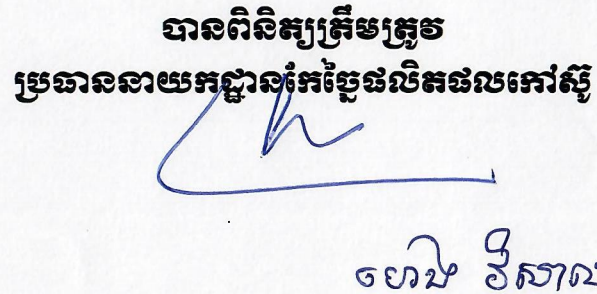 បានពិនិត្យត្រឹមត្រូវ
ប្រធាននាយកដ្ឋានកែច្នៃផលិតផលកៅស៊ូ
ហេង វិសាល